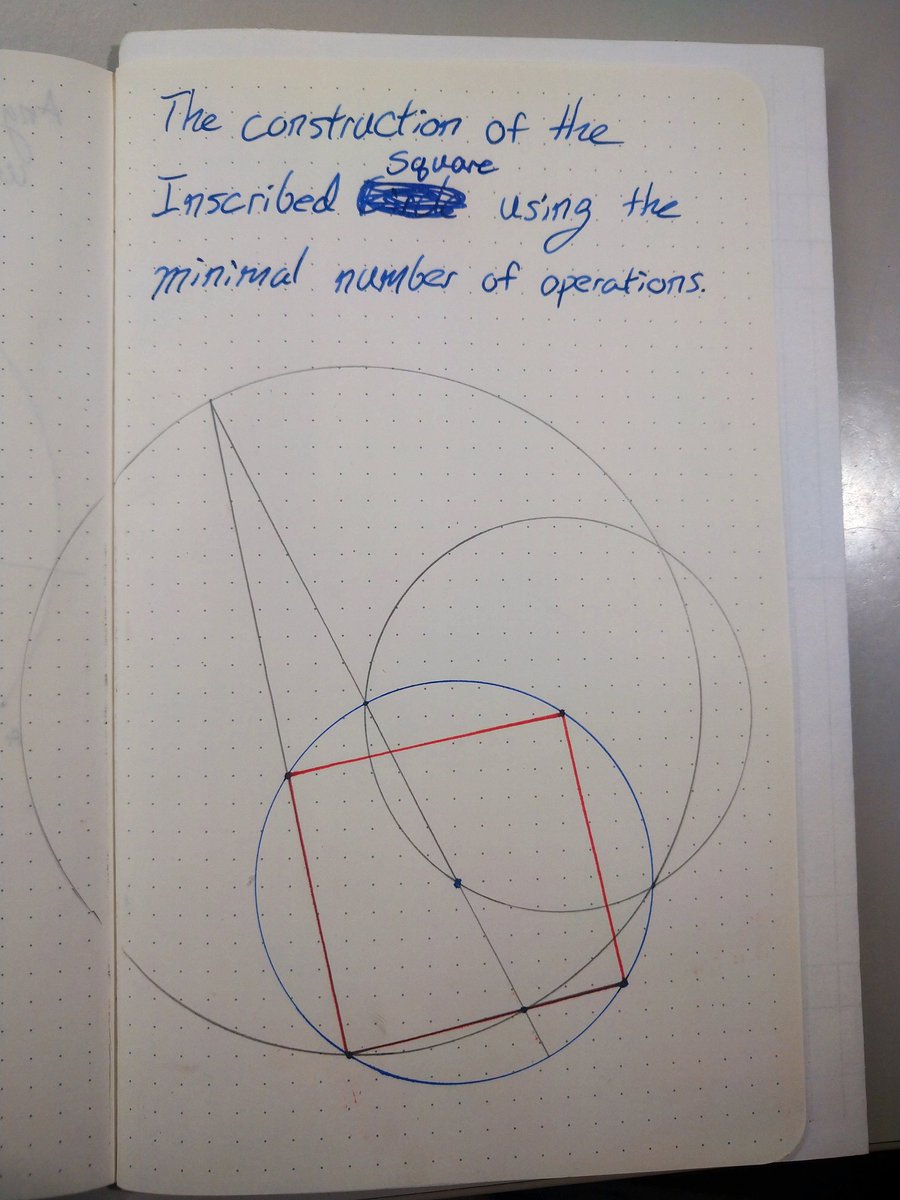 The construction of the
Square
Inscribed using the
minimal number of operations.